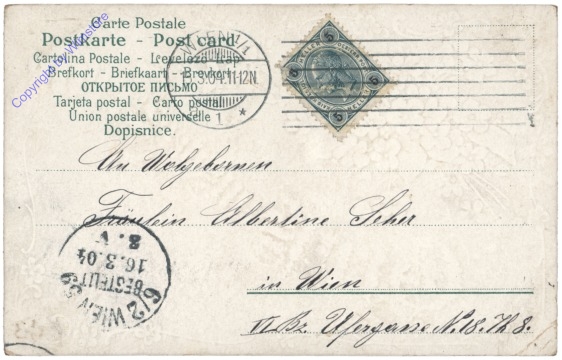 Carte Postale
Postkarte - Post card
Cartolina Postale - Levelező-Lap
Brefkort - Briefkaart - Brevkort
ОТКРЫТОЕ ПИСЬМО
Tarjeta postal - Carto postal
Union postale universelle
Dopisnice.
Copyright by
WIEN 1/1
.3.04.11-12N
1 *
HELLER
6
An Wolgebornen
Fräulein Albertine Scher
in Wien
VI Bz. Ufergasse No 18. Th 8.
6/2 WIEN 56
BESTELLT
16.3.04
8.V